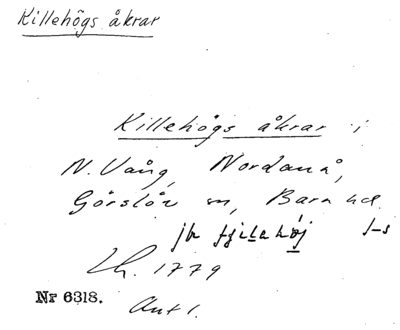 Killehögs åkrar
Killehögs åkrar i
N. Vång, Nordanå,
Görslöv sn, Bara hd
jfr
Lh. 1779
Nr 6318.
Ant 1.